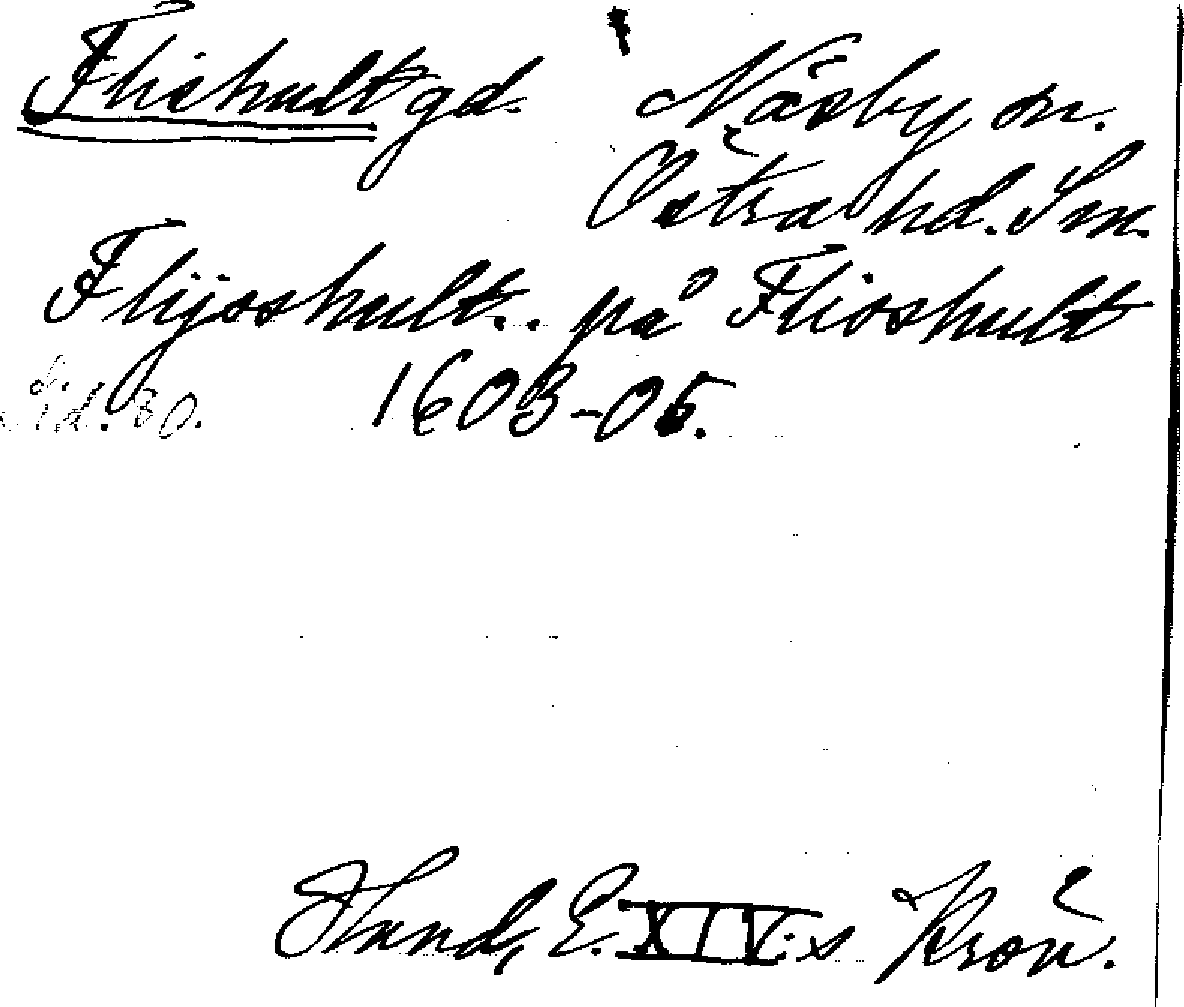 Flishult gd. Näsby sn.
Östra hd. Sm.
Flijsshult.. på Flisshult
Sid. 30. 1603-05.
Hand, E. XIV:s Krön.